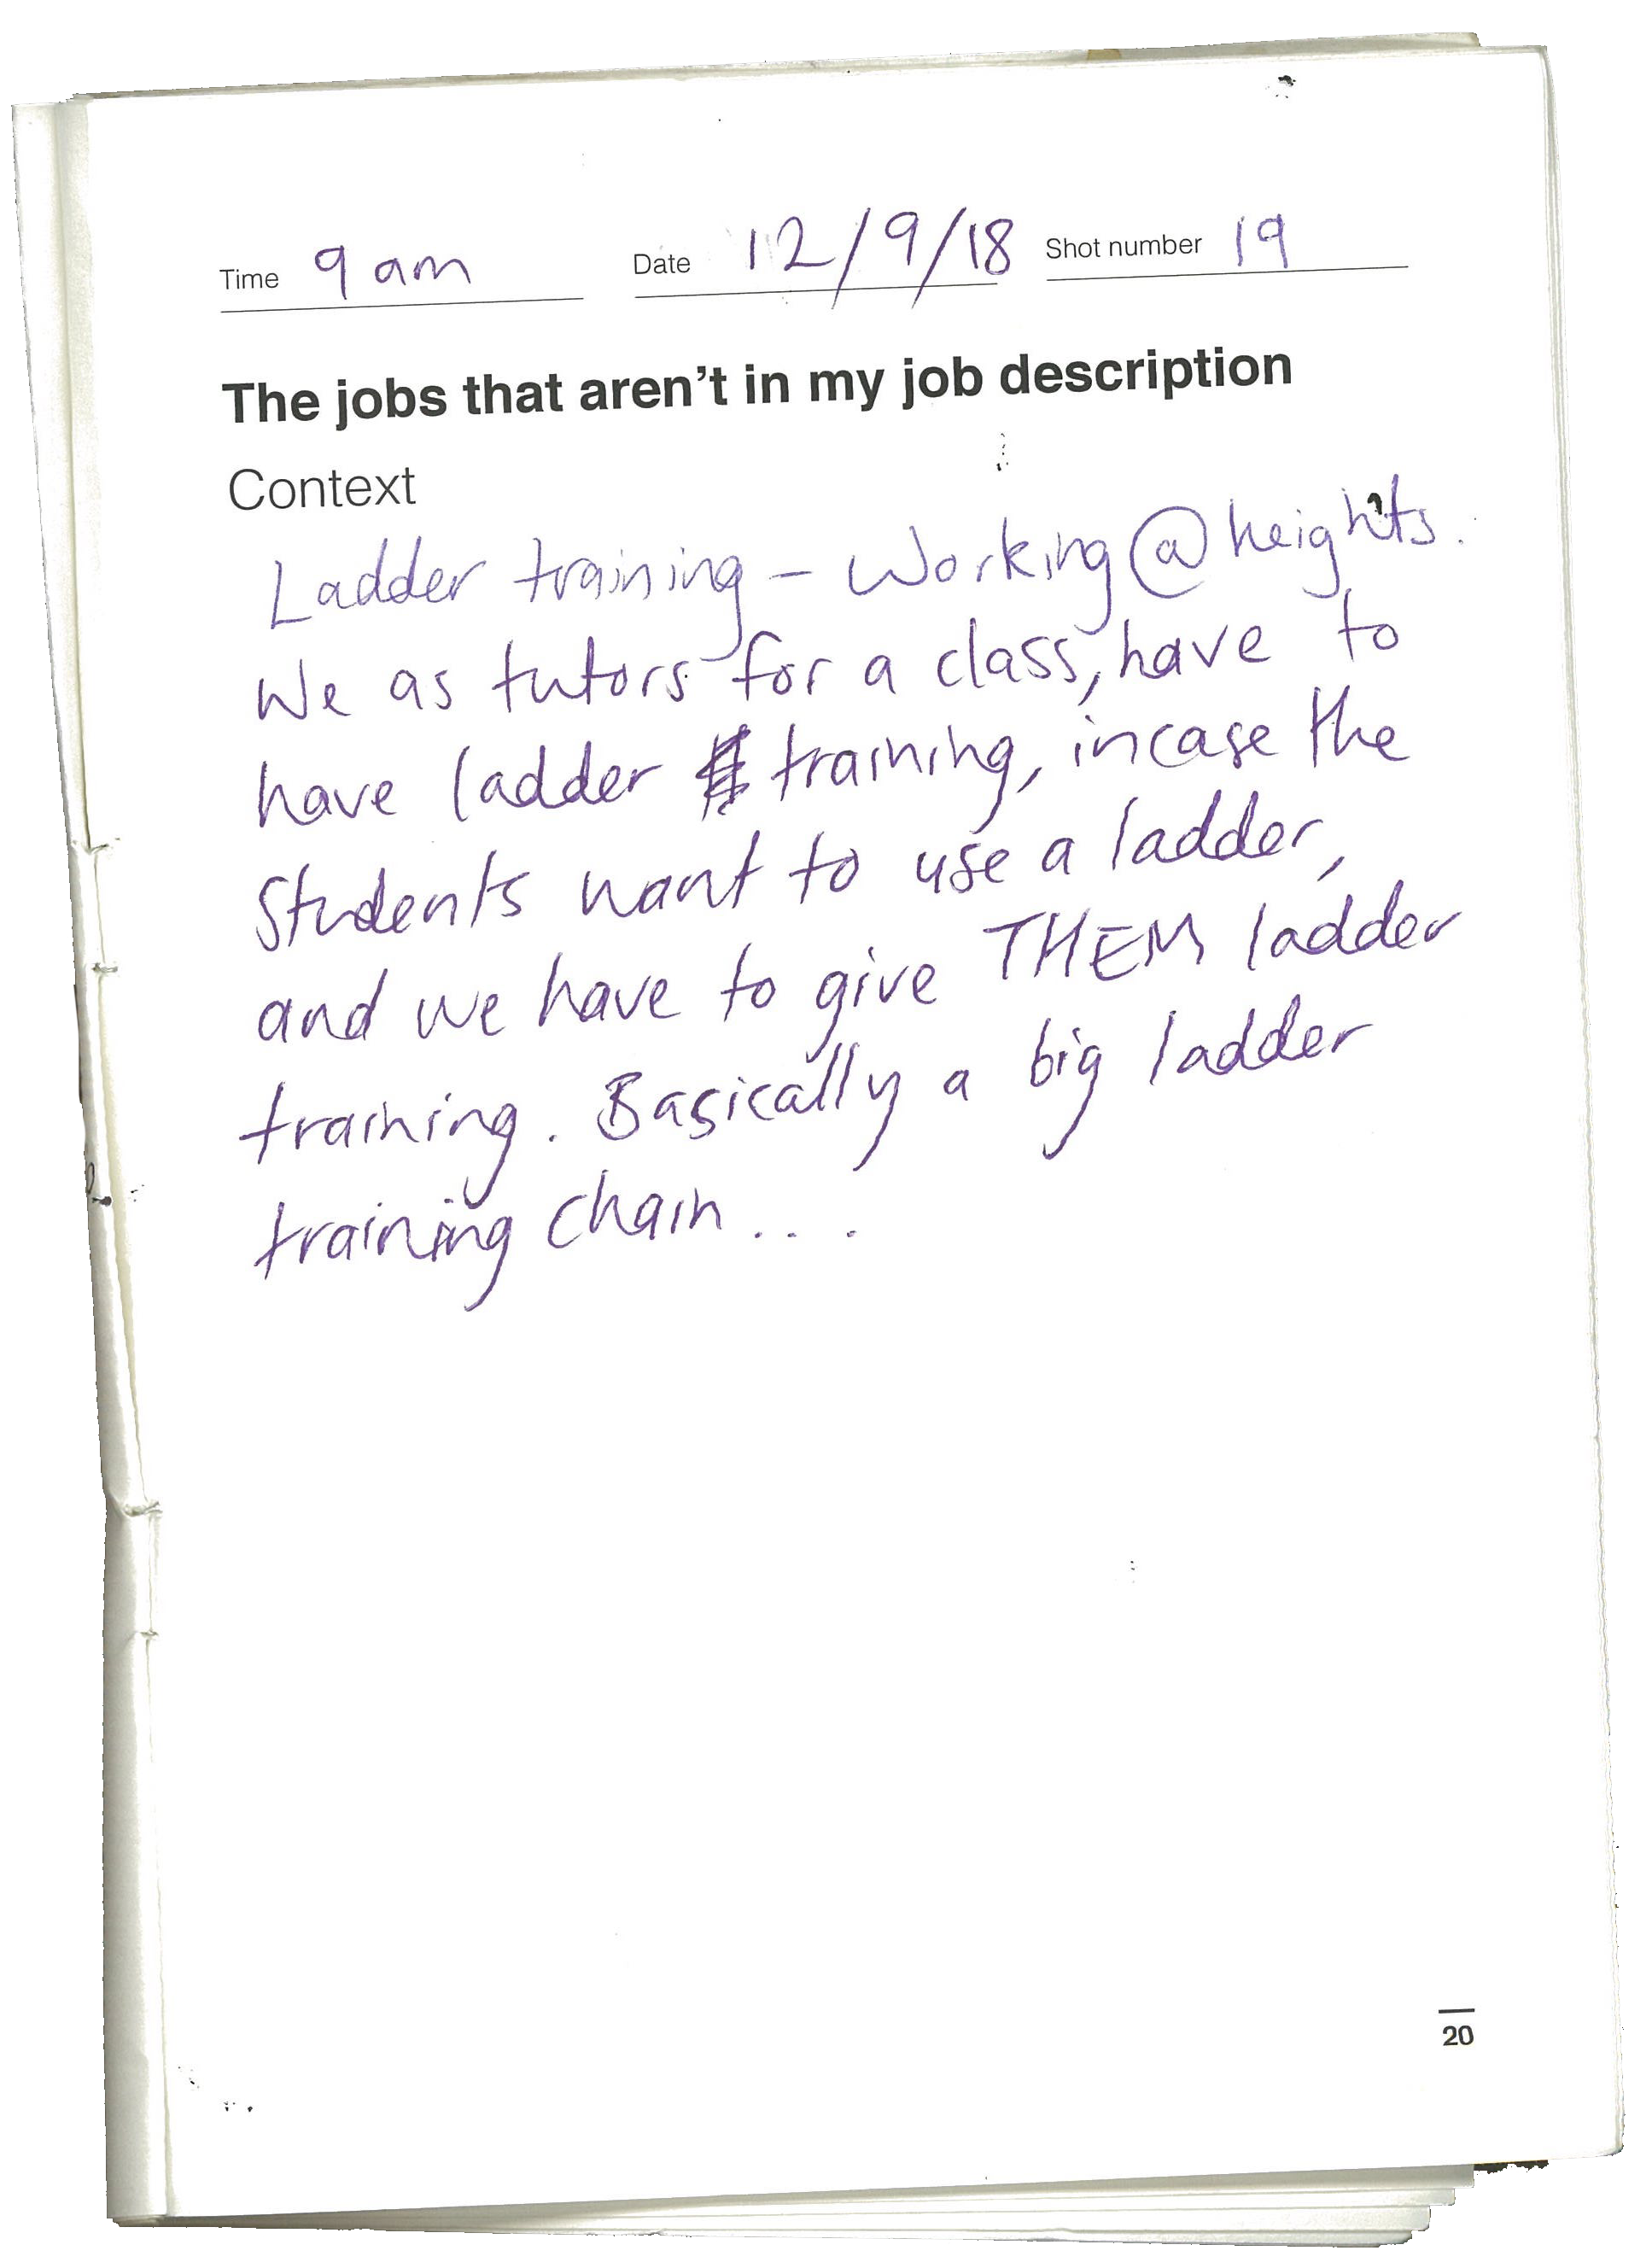 Time 9 am Date 12/9/18 Shot number 19
The jobs that aren't in my job description
Context
Ladder training – Working @ heights.
We as tutors for a class, have to
have ladder training, incase the
students want to use a ladder,
and we have to give THEM ladder
training. Basically a big ladder
training chain....
20